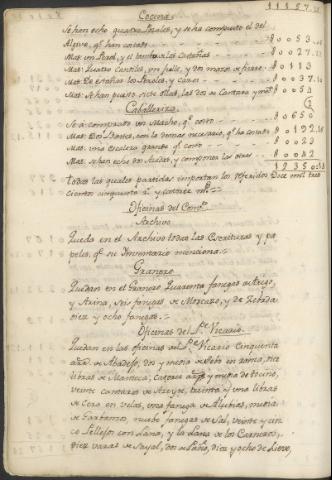 Cocina
Se han echo quatro Peroles, y se ha compuesto el del
Algive, q.e han costado $0053
Mas un Perol, y el $0027
Mas quatro Cantaros, un y un $0113
Mas De estañar los Peroles, y cazos $0037
Mas Se han puesto siete ollas, las dos de Cantaro y m.o $0058
Caballeriza
Se a comprado un Macho, q.e costó $0650
Mas Dos con lo demas necesario, q.e ha costado $0192
Mas una escalera grande q.e costó $0023
Mas Se han echo dos y compuesto las otras $0042
12350
todas las quales partidas importan los referidos Doce mil tres
cientos cinquenta r.s y catorce m.s =
Oficinas del Conv.to
Archivo
Quedo en el Archivo todas las Escrituras y pa
peles, q.e su Inventario menciona =
Granero
Quedan en el Granero Quarenta fanegas de trigo,
y Arina, seis fanegas de Morcazo, y de Zebada
diez y ocho fanegas =
Oficinas del P.e Vicario
Quedan en las oficinas del P.e Vicario Cinquenta
de Abadejo, dos y media de en rama, tres
libras de Manteca, Catorce y media de tocino,
veinte cantaros de Azeyte, treinta y una libras
de Cera en velas, una fanega de Alubias, media
de Garbanzos, nuebe fanegas de Sal, veinte y cin
co Pellejos con Lana, y la Lana de los Carneros,
Diez varas de Sayal, dos de diez y ocho de Lienzo,